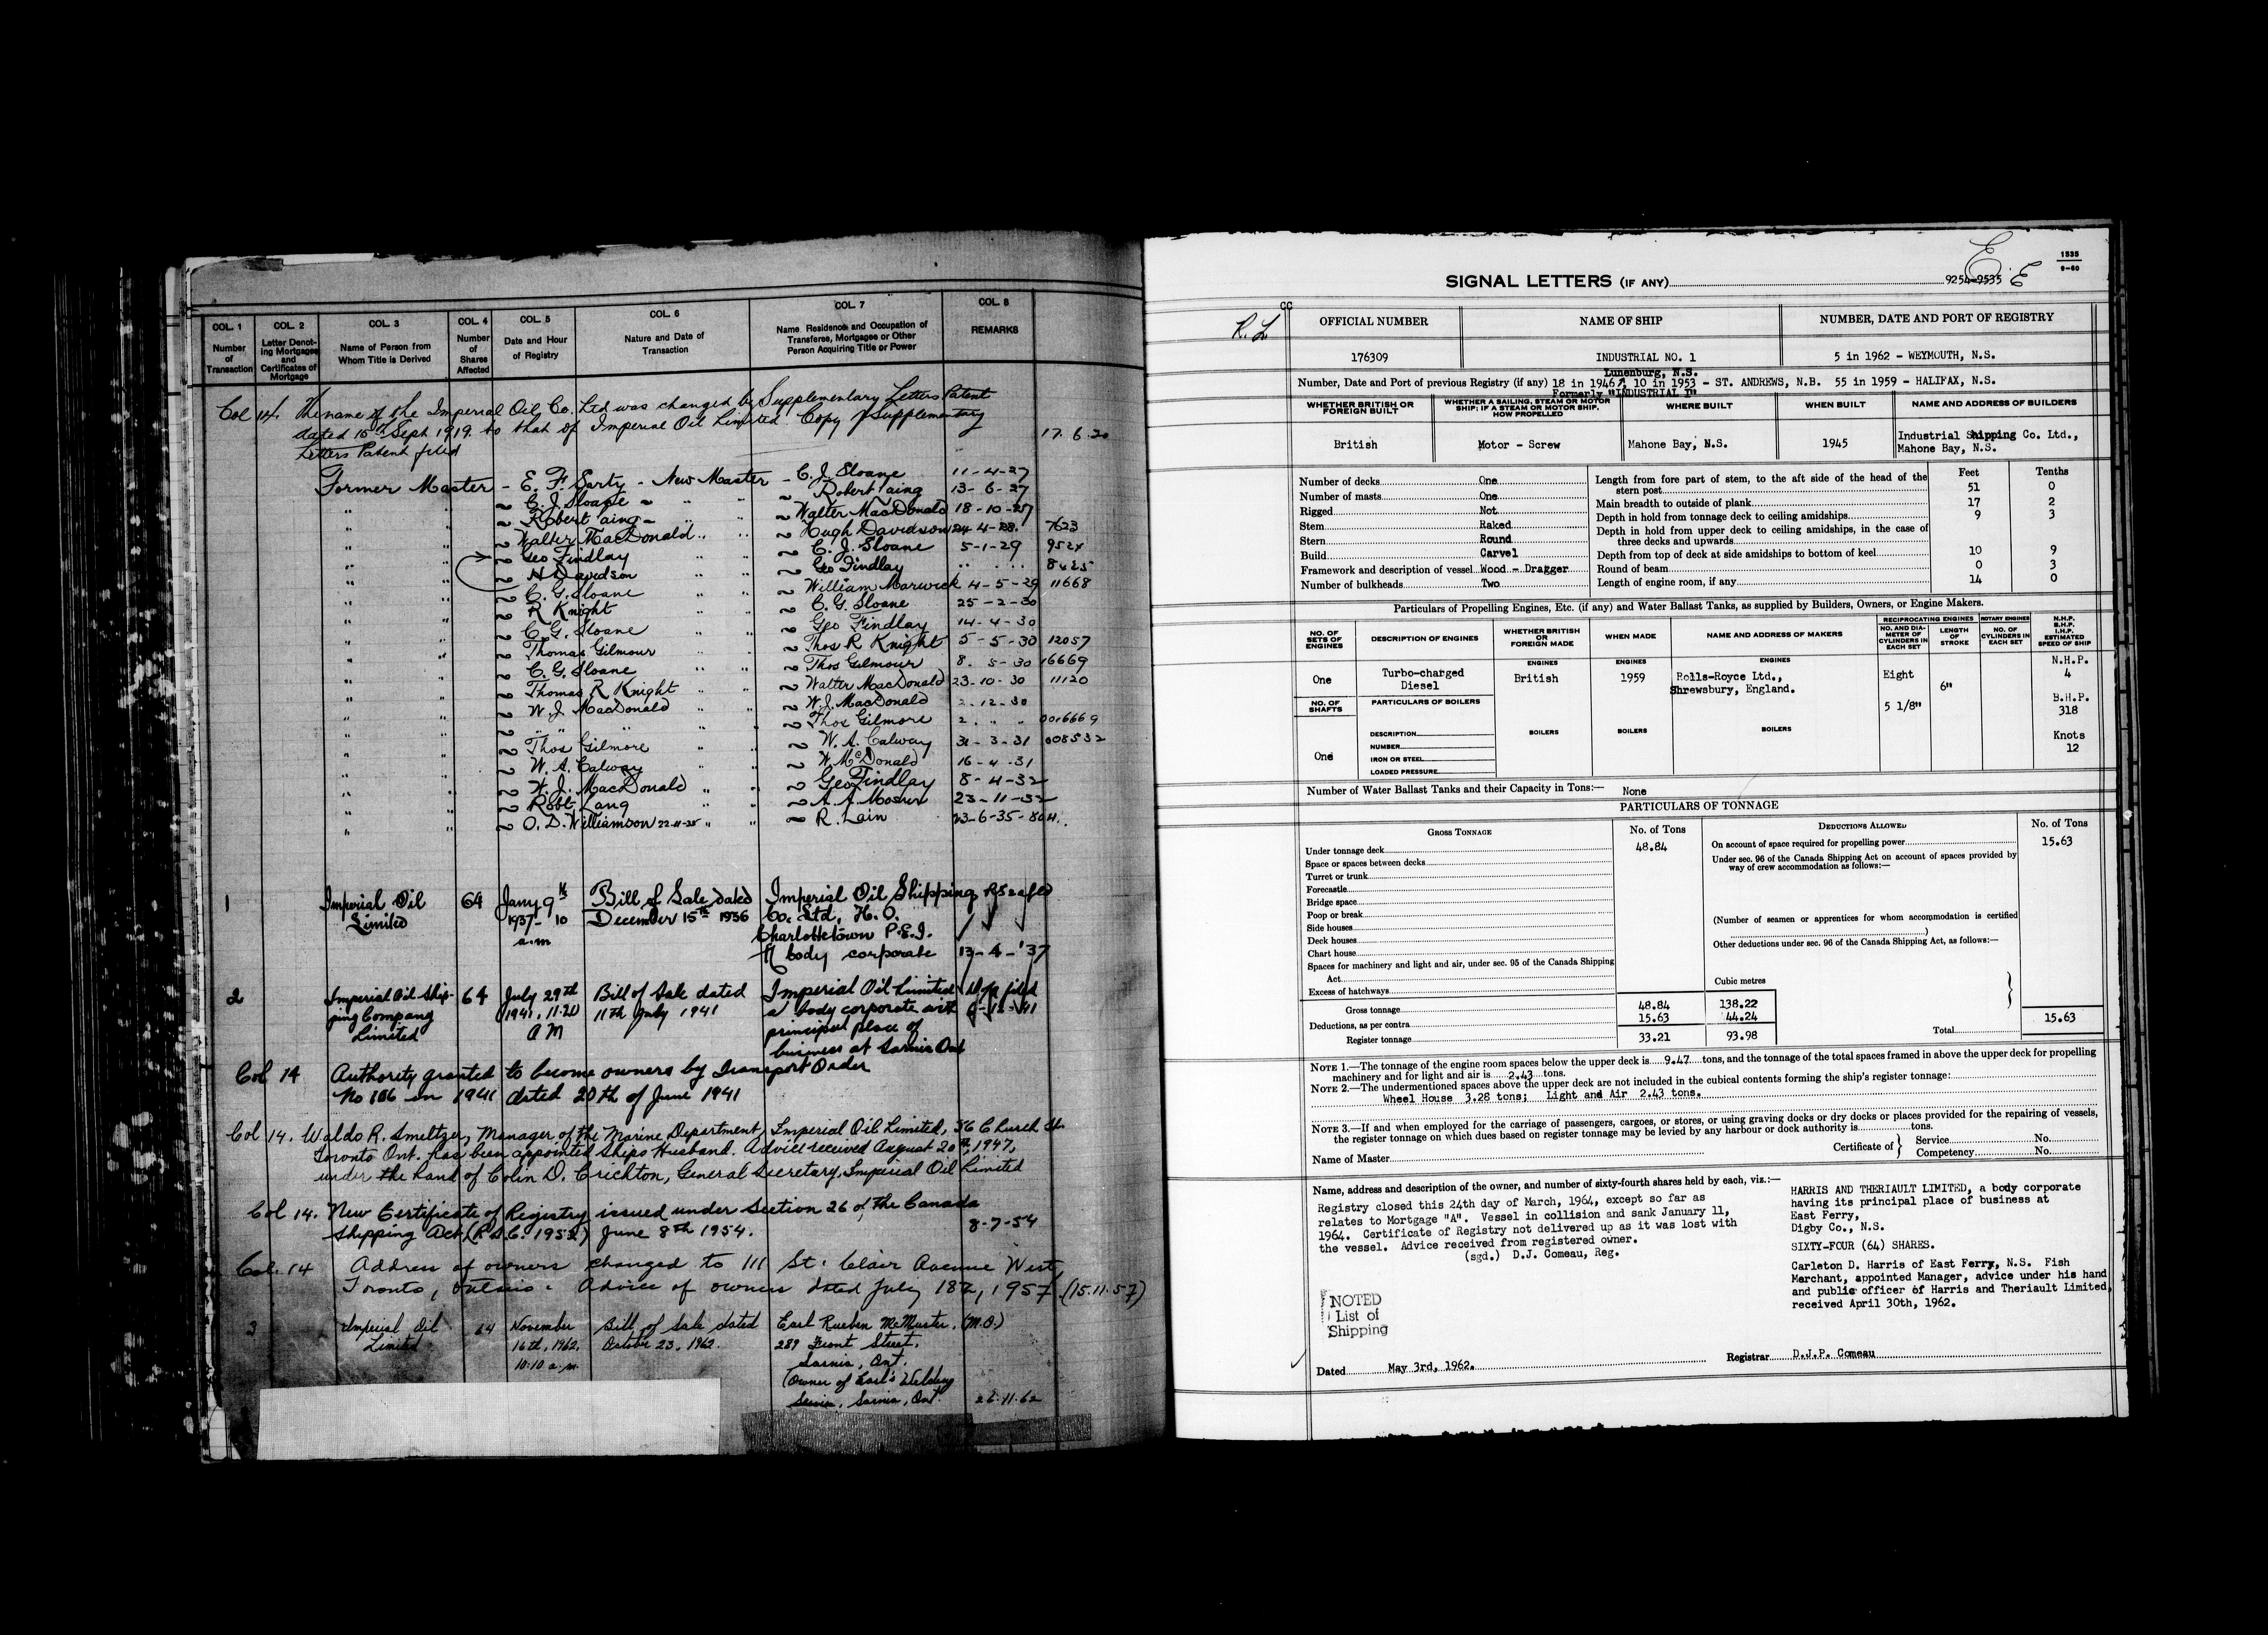 COL. 1 COL. 2 COL. 3 COL. 4 COL. 5 COL. 6 COL. 7 COL. 8
Number of Transaction
Letter Denoting Mortgages and Certificates of Mortgage
Name of Person from Whom Title is Derived
Number of Shares Affected
Date and Hour of Registry
Nature and Date of Transaction
Name Residence and Occupation of Transferee, Mortgagee or Other Person Acquiring Title or Power
REMARKS
Col 14. The name of the Imperial Oil Co. Ltd was changed by Supplementary Letters Patent
dated 15th Sept 1919. to that of Imperial Oil Limited. Copy of Supplementary
Letters Patent filed 17.6.20
Former Master - E. F. Sarty - New Master - C. J. Sloane 11-4-27
" " ~ C. J. Sloane ~ " " ~ Robert Laing 13-6-27
" " ~ Robert Laing - " " ~ Walter MacDonald 18-10-27
" " ~ Walter MacDonald " " ~ Hugh Davidson 24-4-28. 7623
" " ~ Geo Findlay ~ C. J. Sloane 5-1-29
" " ~ H Davidson " " ~ Geo Findlay " " "
" " ~ C. G. Sloane " " ~ William Marwick 4-5-29 11668
" " ~ R Knight ~ C. G. Sloane 25-2-30
" " ~ C. G. Sloane " " ~ Geo Findlay 14-4-30
" " ~ Thomas Gilmour " " ~ Thos R Knight 5-5-30 12057
" " ~ C. G. Sloane " " ~ Thos Gilmour 8. 5-30 16669
" " ~ Thomas R Knight " " ~ Walter MacDonald 23-10-30 11120
" " ~ W J MacDonald " " ~ W. J. MacDonald 2-12-30
" " ~ " " " " ~ Thos Gilmore 2. " " 0016669
" " ~ Thos Gilmore " " ~ W. A. Calway 31-3-31 008532
" " ~ W. A. Calway " " ~ W McDonald 16-4-31
" " ~ W. J. MacDonald " " ~ Geo Findlay 8-4-32
" " ~ Robt Lang " " ~ A. A. Mosher 23-11-32
" " ~ O. D. Williamson 22-11-35 " " ~ R. Lain 23-6-35
1 Imperial Oil Limited 64 Jany 9th 1937- 10 a.m Bill of Sale dated December 15th 1936 Imperial Oil Shipping Co. Ltd, H.O. Charlottetown P.E.I. A body corporate 13-4-'37
2 Imperial Oil Shipping Company Limited 64 July 29th 1941, 11.20 AM Bill of Sale dated 11th July 1941 Imperial Oil Limited a body corporate with principal place of business at Sarnia Ont
Col 14 Authority granted to become owners by Transport Order
No 106 in 1941 dated 20th of June 1941
Col 14. Waldo R. Smeltzer, Manager of the Marine Department, Imperial Oil Limited, 56 Church St.
Toronto Ont. has been appointed Ships Husband. Advice received August 20th, 1947,
under the hand of Colin D. Crichton, General Secretary, Imperial Oil Limited
Col 14. New Certificate of Registry issued under Section 26 of the Canada
Shipping Act, (R.S.C. 1952) June 8th 1954. 8-7-54
Col. 14 Address of owners changed to 111 St. Clair Avenue West,
Toronto, Ontario. Advice of owners dated July 18, 1957. (15.11.57)
3 Imperial Oil Limited 64 November 16th, 1962, 10:10 a.m. Bill of Sale dated October 23, 1962. Earl Rueben McMaster, (M.O.) 289 Front Street, Sarnia, Ont. (Owner of Earl's Welding Service, Sarnia, Ont. 26.11.62
1535
9-60
SIGNAL LETTERS (IF ANY) 9254-9535 E
CC
R. L.
OFFICIAL NUMBER NAME OF SHIP NUMBER, DATE AND PORT OF REGISTRY
176309 INDUSTRIAL NO. 1 5 in 1962 - WEYMOUTH, N.S.
Lunenburg, N.S.
Number, Date and Port of previous Registry (if any) 18 in 1946, 10 in 1953 - ST. ANDREWS, N.B. 55 in 1959 - HALIFAX, N.S.
Formerly "INDUSTRIAL I"
WHETHER BRITISH OR FOREIGN BUILT
WHETHER A SAILING, STEAM OR MOTOR SHIP; IF A STEAM OR MOTOR SHIP, HOW PROPELLED
WHERE BUILT
WHEN BUILT
NAME AND ADDRESS OF BUILDERS
British Motor - Screw Mahone Bay, N.S. 1945 Industrial Shipping Co. Ltd., Mahone Bay, N.S.
Feet Tenths
Number of decks One
Number of masts One
Rigged Not
Stem Raked
Stern Round
Build Carvel
Framework and description of vessel Wood - Dragger
Number of bulkheads Two
Length from fore part of stem, to the aft side of the head of the stern post 51 0
Main breadth to outside of plank 17 2
Depth in hold from tonnage deck to ceiling amidships 9 3
Depth in hold from upper deck to ceiling amidships, in the case of three decks and upwards
Depth from top of deck at side amidships to bottom of keel 10 9
Round of beam 0 3
Length of engine room, if any 14 0
Particulars of Propelling Engines, Etc. (if any) and Water Ballast Tanks, as supplied by Builders, Owners, or Engine Makers.
NO. OF SETS OF ENGINES
DESCRIPTION OF ENGINES
WHETHER BRITISH OR FOREIGN MADE
WHEN MADE
NAME AND ADDRESS OF MAKERS
RECIPROCATING ENGINES ROTARY ENGINES
NO. AND DIAMETER OF CYLINDERS IN EACH SET
LENGTH OF STROKE
NO. OF CYLINDERS IN EACH SET
N.H.P. B.H.P. I.H.P. ESTIMATED SPEED OF SHIP
ENGINES ENGINES ENGINES
One Turbo-charged Diesel British 1959 Rolls-Royce Ltd., Shrewsbury, England. Eight 5 1/8" 6"
N.H.P.
4
B.H.P.
318
Knots
12
NO. OF SHAFTS PARTICULARS OF BOILERS
One
DESCRIPTION BOILERS BOILERS BOILERS
NUMBER
IRON OR STEEL
LOADED PRESSURE
Number of Water Ballast Tanks and their Capacity in Tons:— None
PARTICULARS OF TONNAGE
GROSS TONNAGE No. of Tons DEDUCTIONS ALLOWED No. of Tons
Under tonnage deck 48.84
Space or spaces between decks
Turret or trunk
Forecastle
Bridge space
Poop or break
Side houses
Deck houses
Chart house
Spaces for machinery and light and air, under sec. 95 of the Canada Shipping Act
Excess of hatchways
Cubic metres
Gross tonnage 48.84 138.22
Deductions, as per contra 15.63 44.24
Register tonnage 33.21 93.98
On account of space required for propelling power 15.63
Under sec. 96 of the Canada Shipping Act on account of spaces provided by way of crew accommodation as follows:—
(Number of seamen or apprentices for whom accommodation is certified )
Other deductions under sec. 96 of the Canada Shipping Act, as follows:—
Total 15.63
NOTE 1.—The tonnage of the engine room spaces below the upper deck is 9.47 tons, and the tonnage of the total spaces framed in above the upper deck for propelling
machinery and for light and air is 2.43 tons.
NOTE 2.—The undermentioned spaces above the upper deck are not included in the cubical contents forming the ship's register tonnage:
Wheel House 3.28 tons; Light and Air 2.43 tons.
NOTE 3.—If and when employed for the carriage of passengers, cargoes, or stores, or using graving docks or dry docks or places provided for the repairing of vessels,
the register tonnage on which dues based on register tonnage may be levied by any harbour or dock authority is tons.
Name of Master Certificate of Service No. Competency No.
Name, address and description of the owner, and number of sixty-fourth shares held by each, viz.:—
Registry closed this 24th day of March, 1964, except so far as
relates to Mortgage "A". Vessel in collision and sank January 11,
1964. Certificate of Registry not delivered up as it was lost with
the vessel. Advice received from registered owner.
(sgd.) D.J. Comeau, Reg.
HARRIS AND THERIAULT LIMITED, a body corporate
having its principal place of business at
East Ferry,
Digby Co., N.S.
SIXTY-FOUR (64) SHARES.
Carleton D. Harris of East Ferry, N.S. Fish
Merchant, appointed Manager, advice under his hand
and public officer of Harris and Theriault Limited,
received April 30th, 1962.
NOTED
List of
Shipping
Dated May 3rd, 1962. Registrar D.J.P. Comeau